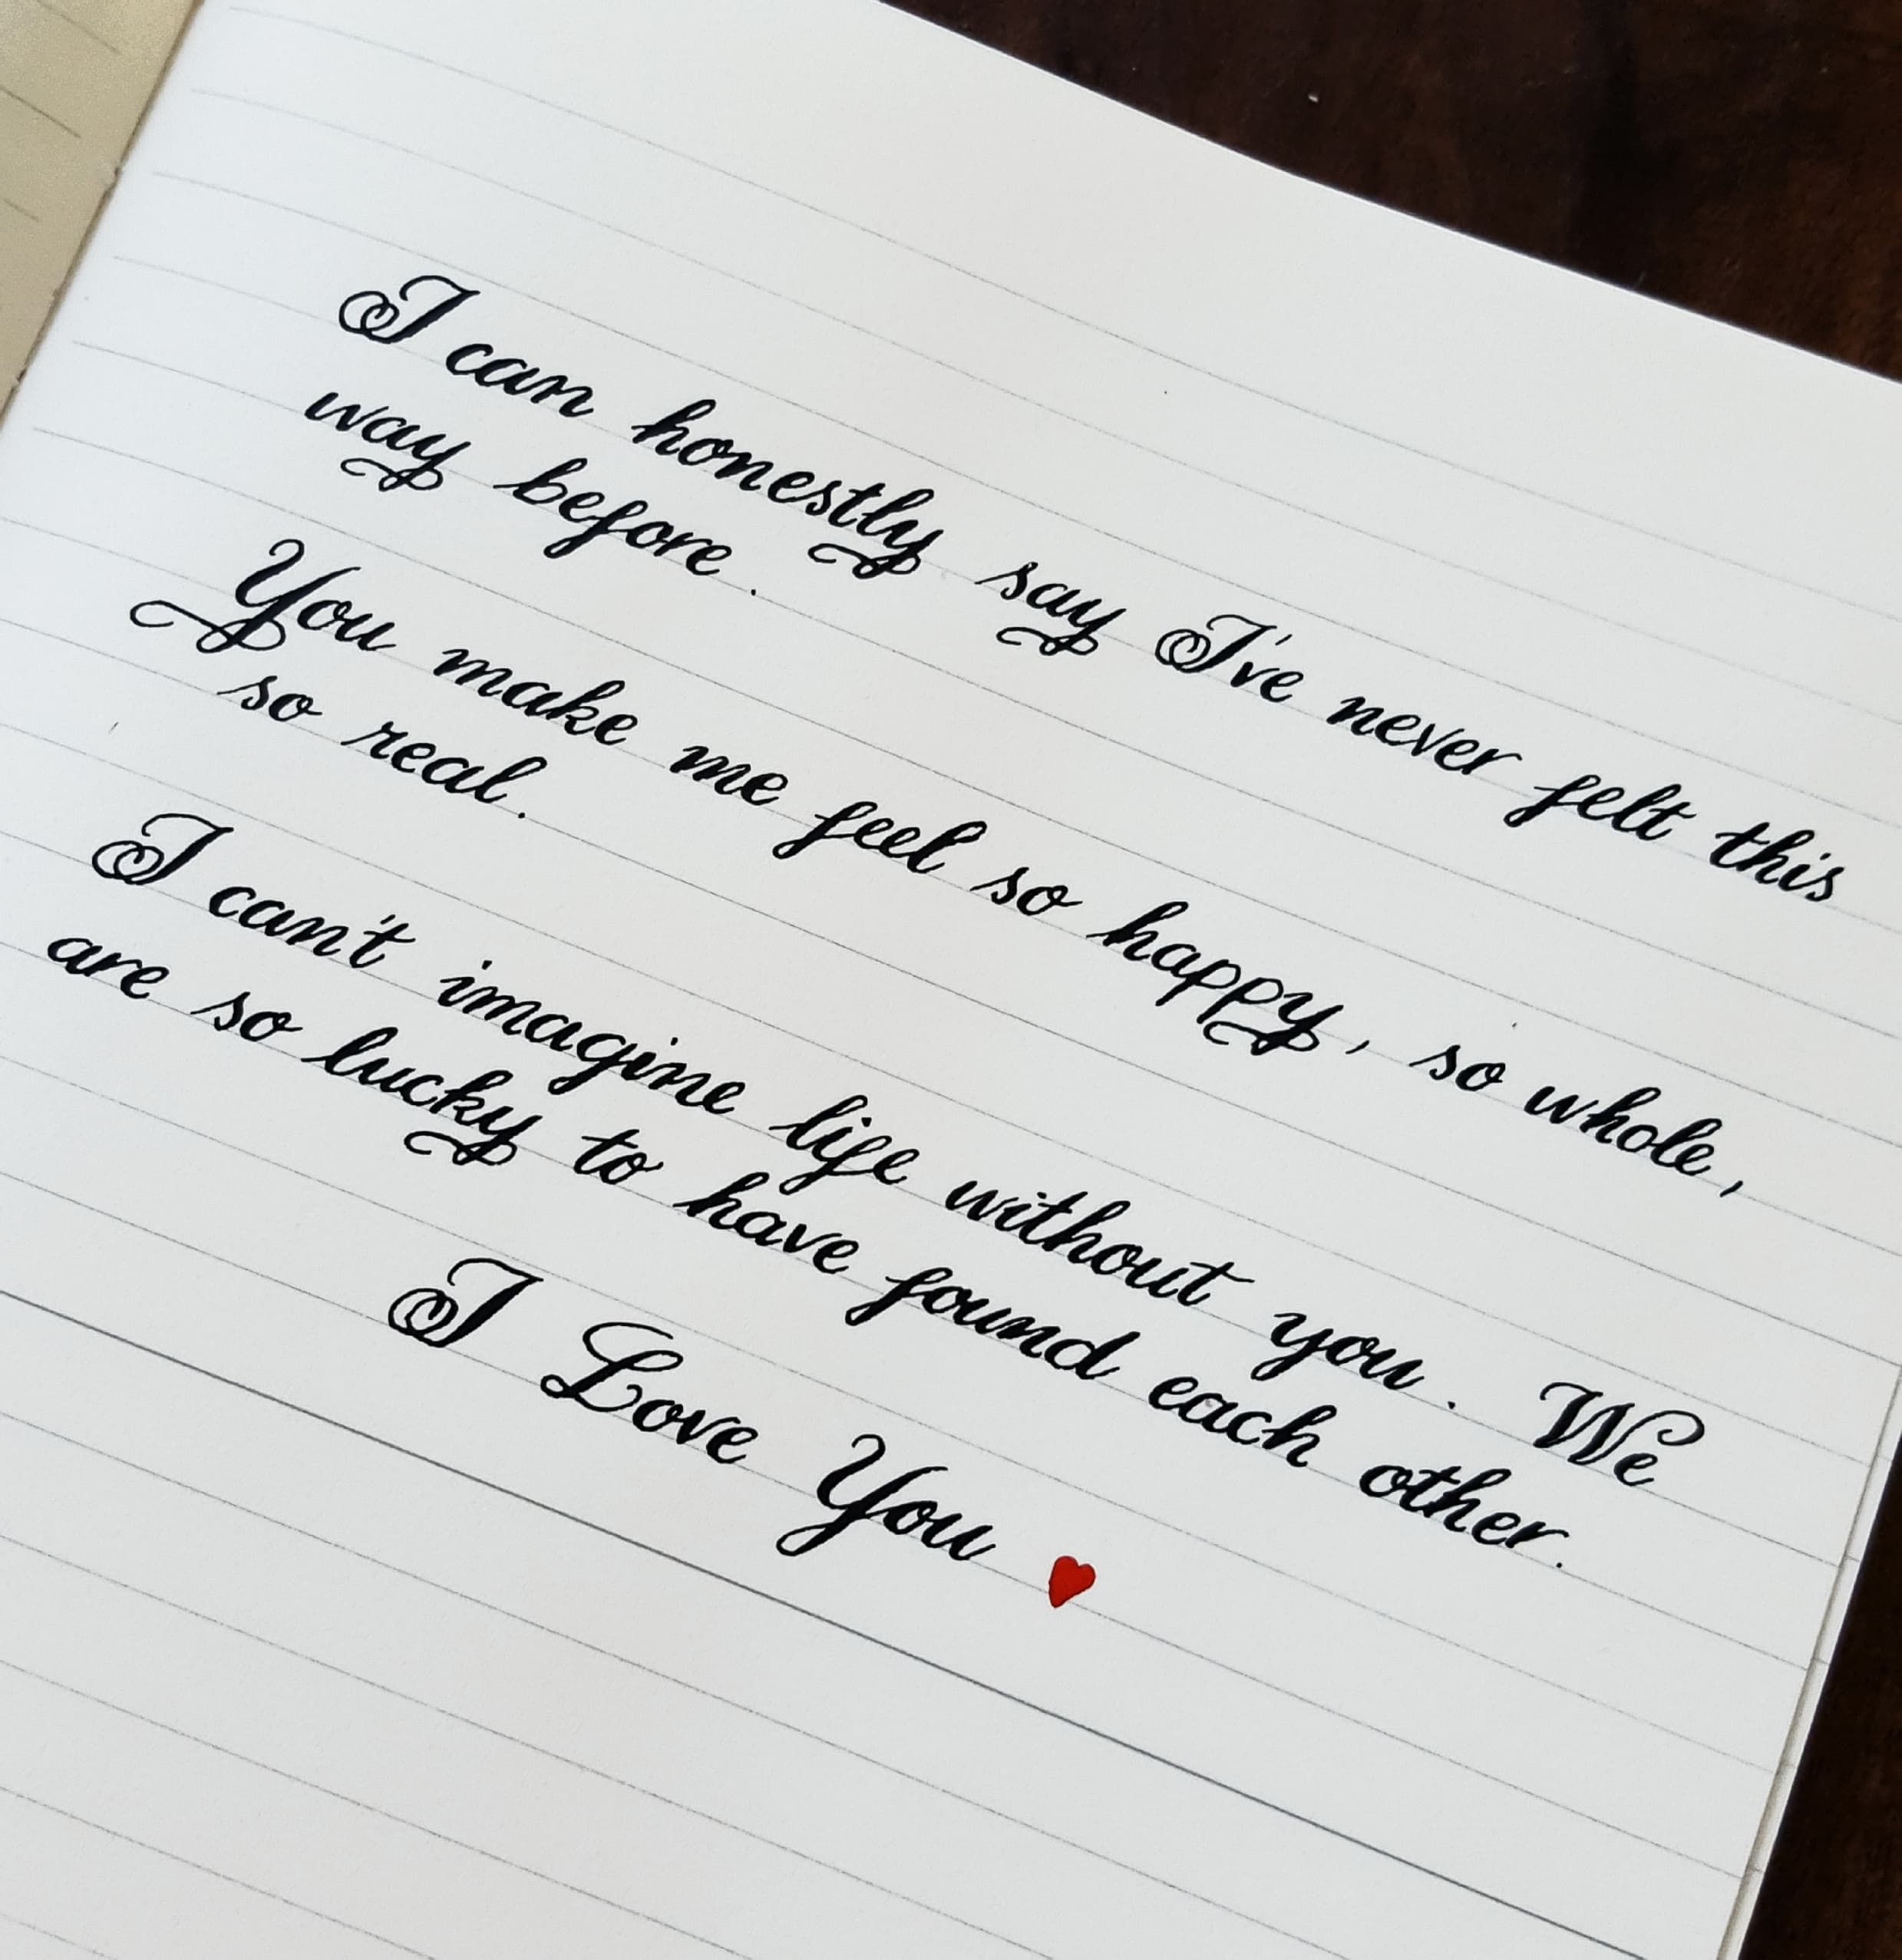 I can honestly say I've never felt this
way before.
You make me feel so happy, so whole,
so real.
I can't imagine life without you. We
are so lucky to have found each other.
I Love You ♥